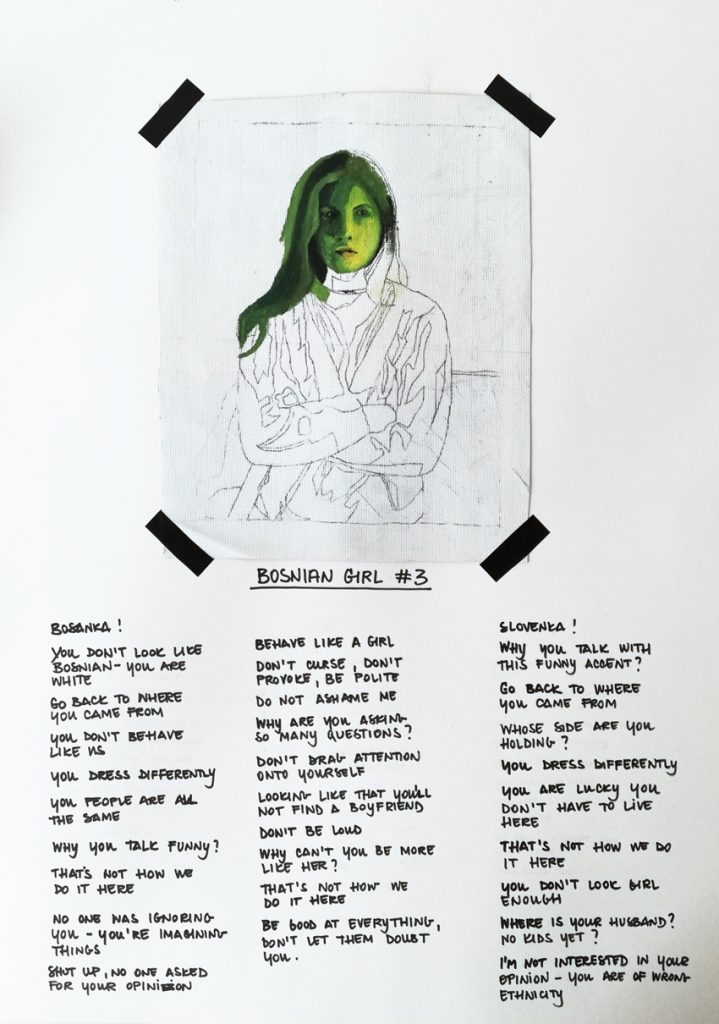 BOSNIAN GIRL #3
BOSANKA!
YOU DON'T LOOK LIKE
BOSNIAN - YOU ARE
WHITE
GO BACK TO WHERE
YOU CAME FROM
YOU DON'T BEHAVE
LIKE US
YOU DRESS DIFFERENTLY
YOU PEOPLE ARE ALL
THE SAME
WHY YOU TALK FUNNY?
THAT'S NOT HOW WE
DO IT HERE
NO ONE WAS IGNORING
YOU - YOU'RE IMAGINING
THINGS
SHUT UP, NO ONE ASKED
FOR YOUR OPINION
BEHAVE LIKE A GIRL
DON'T CURSE, DON'T
PROVOKE, BE POLITE
DO NOT ASHAME ME
WHY ARE YOU ASKING
SO MANY QUESTIONS?
DON'T DRAG ATTENTION
ONTO YOURSELF
LOOKING LIKE THAT YOU'LL
NOT FIND A BOYFRIEND
DON'T BE LOUD
WHY CAN'T YOU BE MORE
LIKE HER?
THAT'S NOT HOW WE
DO IT HERE
BE GOOD AT EVERYTHING,
DON'T LET THEM DOUBT
YOU.
SLOVENKA!
WHY YOU TALK WITH
THIS FUNNY ACCENT?
GO BACK TO WHERE
YOU CAME FROM
WHOSE SIDE ARE YOU
HOLDING?
YOU DRESS DIFFERENTLY
YOU ARE LUCKY YOU
DON'T HAVE TO LIVE
HERE
THAT'S NOT HOW WE DO
IT HERE
YOU DON'T LOOK GIRL
ENOUGH
WHERE IS YOUR HUSBAND?
NO KIDS YET?
I'M NOT INTERESTED IN YOUR
OPINION - YOU ARE OF WRONG
ETHNICITY